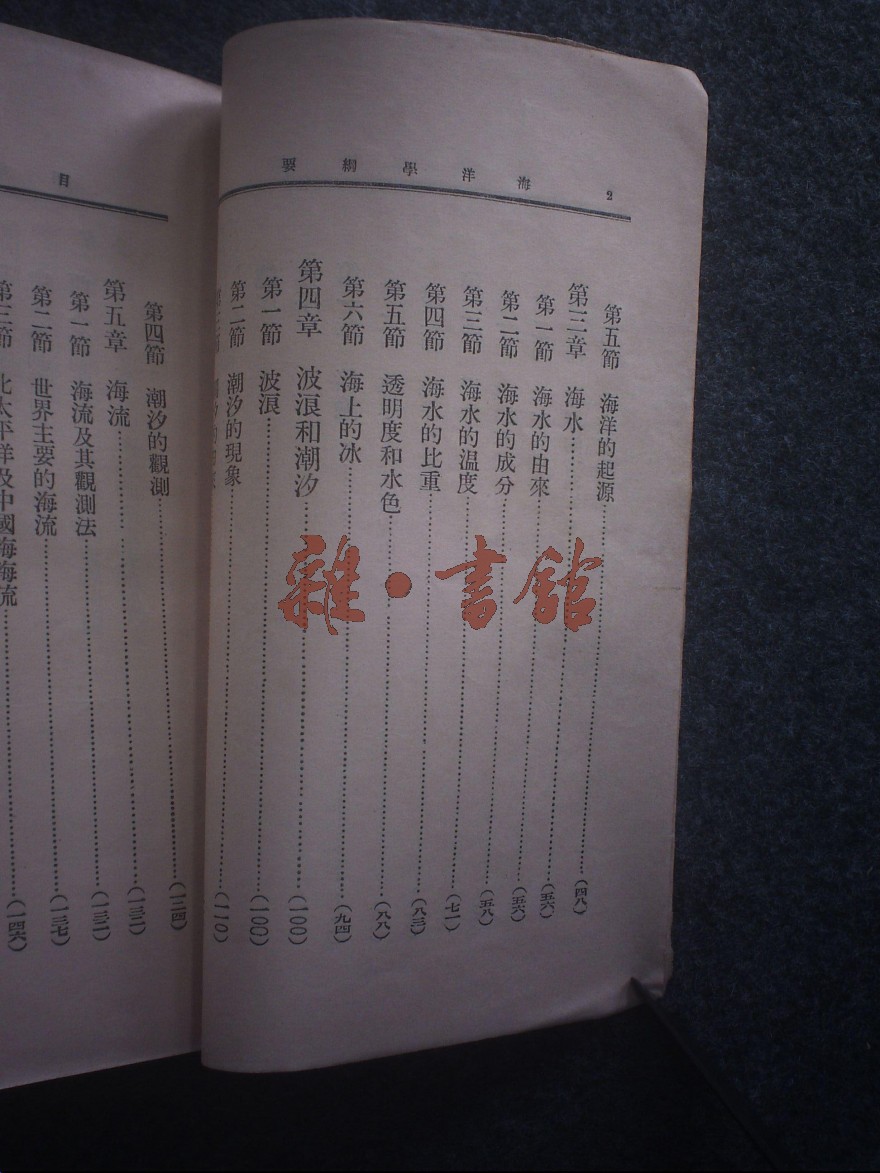 2 海洋學綱要
第五節 海洋的起源……(四八)
第三章 海水……(五六)
第一節 海水的由來……(五六)
第二節 海水的成分……(五八)
第三節 海水的温度……(七一)
第四節 海水的比重……(八三)
第五節 透明度和水色……(八八)
第六節 海上的冰……(九四)
第四章 波浪和潮汐……(一〇〇)
第一節 波浪……(一〇〇)
第二節 潮汐的現象……(一一〇)
目
第四節 潮汐的觀測……(一二四)
第五章 海流……(一三二)
第一節 海流及其觀測法……(一三二)
第二節 世界主要的海流……(一三七)
第三節 北太平洋及中國海海流……(一四六)
雜·書館